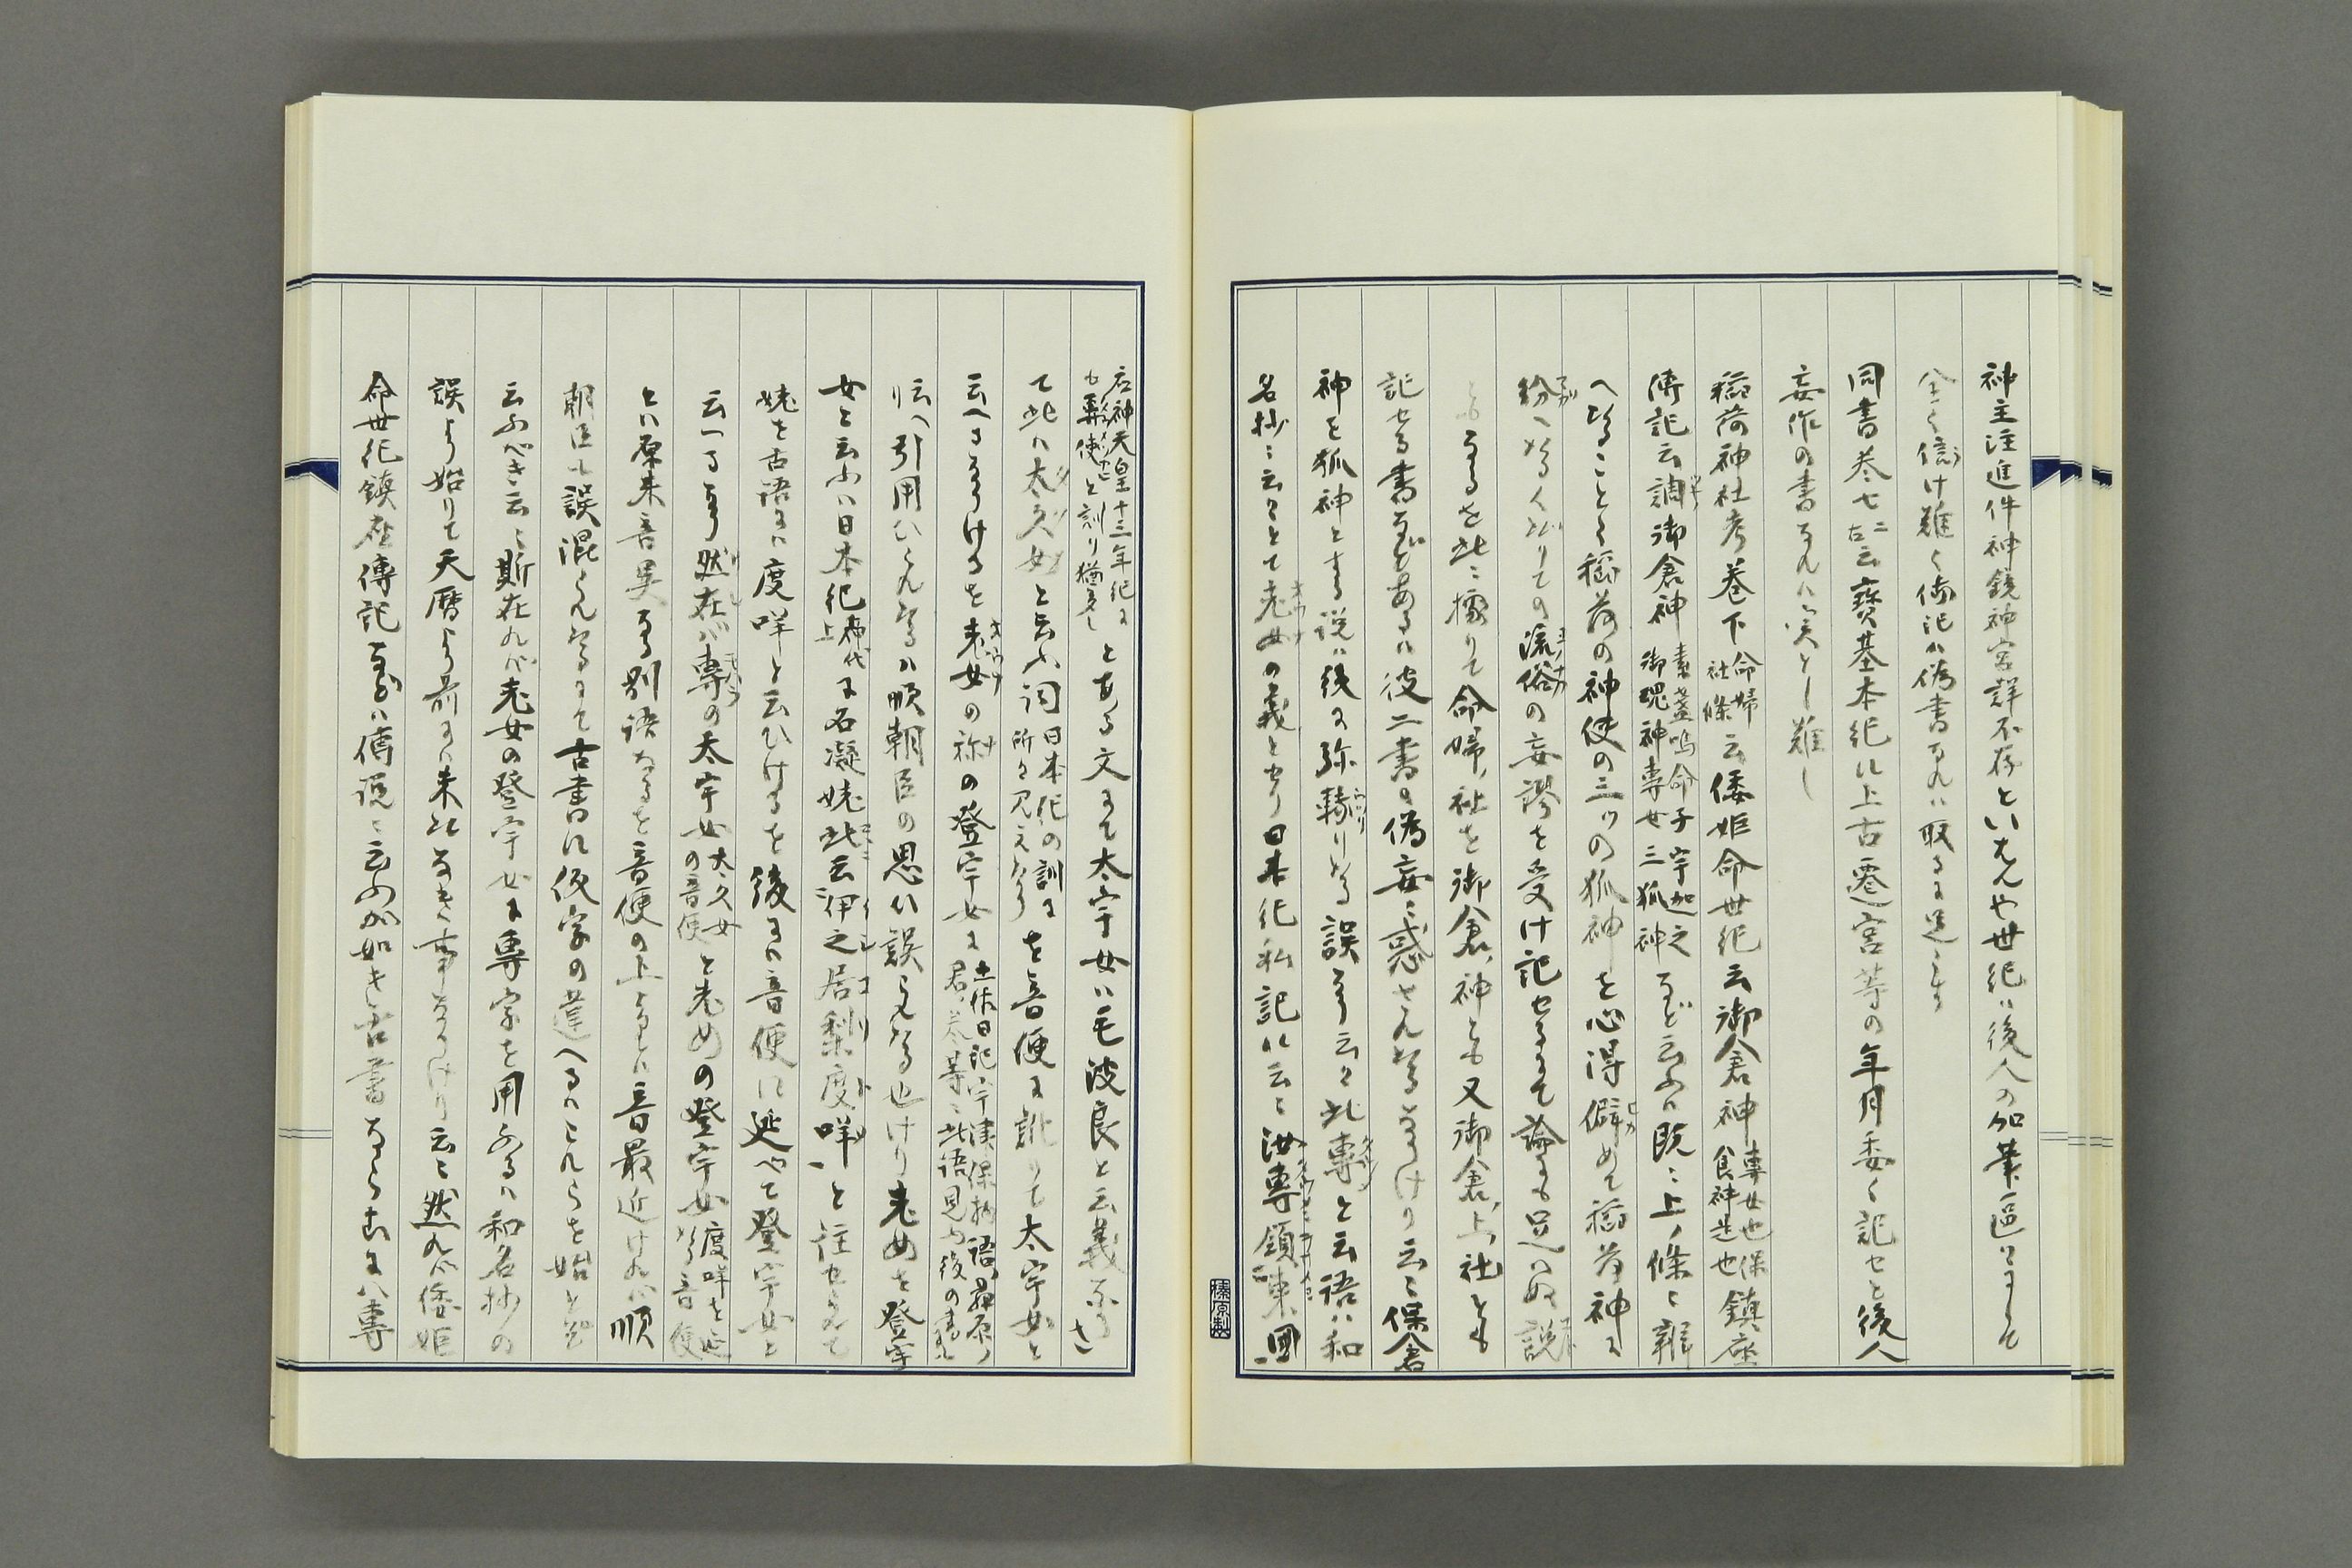 神主注進件神鏡神宮詳不存といへや世紀ハ後人の加筆
全く信け難く偽書なれハ取るに足らす
同書巻七ニ右云寶基本紀ハ上古遷宮等の年月委く記せと後人
妄作の書なれハ実とし難し
稲荷神社考巻下命婦社條云倭姫命世紀云御倉神専女也保食神是也鎮座
傳記云調御倉神素盞嗚命子宇迦之御魂神専女三狐神など云ふハ既ニ上ノ條ニ辯
へたることく稲荷の神使の三ツの狐神を心得僻めて稲荷神に
紛へたる流俗の妄謬を受け記せるにて論にも足ハぬ説
ともなるを此ニ據りて命婦ノ社を御倉ノ神とも又御倉ノ上ノ社とも
記せる書などあるハ彼二書の偽妄ニ惑されたるなりけり云々保食
神を狐神とする説ハ後に弥轉りたる誤なり云々此専と云語ハ和
名抄ニ云々とて老女の義とせり日本紀私記に云々汝専領東國
右神天皇十三年紀にも専使と訓り猶多しとある文にて太宇女ハ毛波良と云義なり
て此ハ太久女と云ふ詞日本紀の訓に所々見えたりを音便に訛りて太宇女と
云へるなりけるを老女の称の登宇女に土佐日記宇津保物語藤原ノ君ノ巻等ニ此語見ゆ後の書
り云へ引用ひられたるハ順朝臣の思ひ誤られたる也けり老めを登宇
女と云ふハ日本紀神代上に石凝姥此云伊之居梨度咩と注せられて
姥を古語にハ度咩と云ひけるを後にハ音便に延べて登宇女と
云へるなり然在ハ専の太宇女太久女の音便と老めの登宇女度咩を延たる音便
とハ原来音異なる別語なるを音便の上よりハ音最近けれハ順
朝臣も誤混られたるにて古書に仮字の違へるハこれらを始とそ
云ふべき云々斯在れバ老女の登宇女に専字を用ふるハ和名抄の
誤より始りて天暦より前にハ未此なき事なりけり云々然れバ倭姫
命世紀鎮座傳記などハ傳説ニ云ふが如き古書ならむにハ専
榛原製